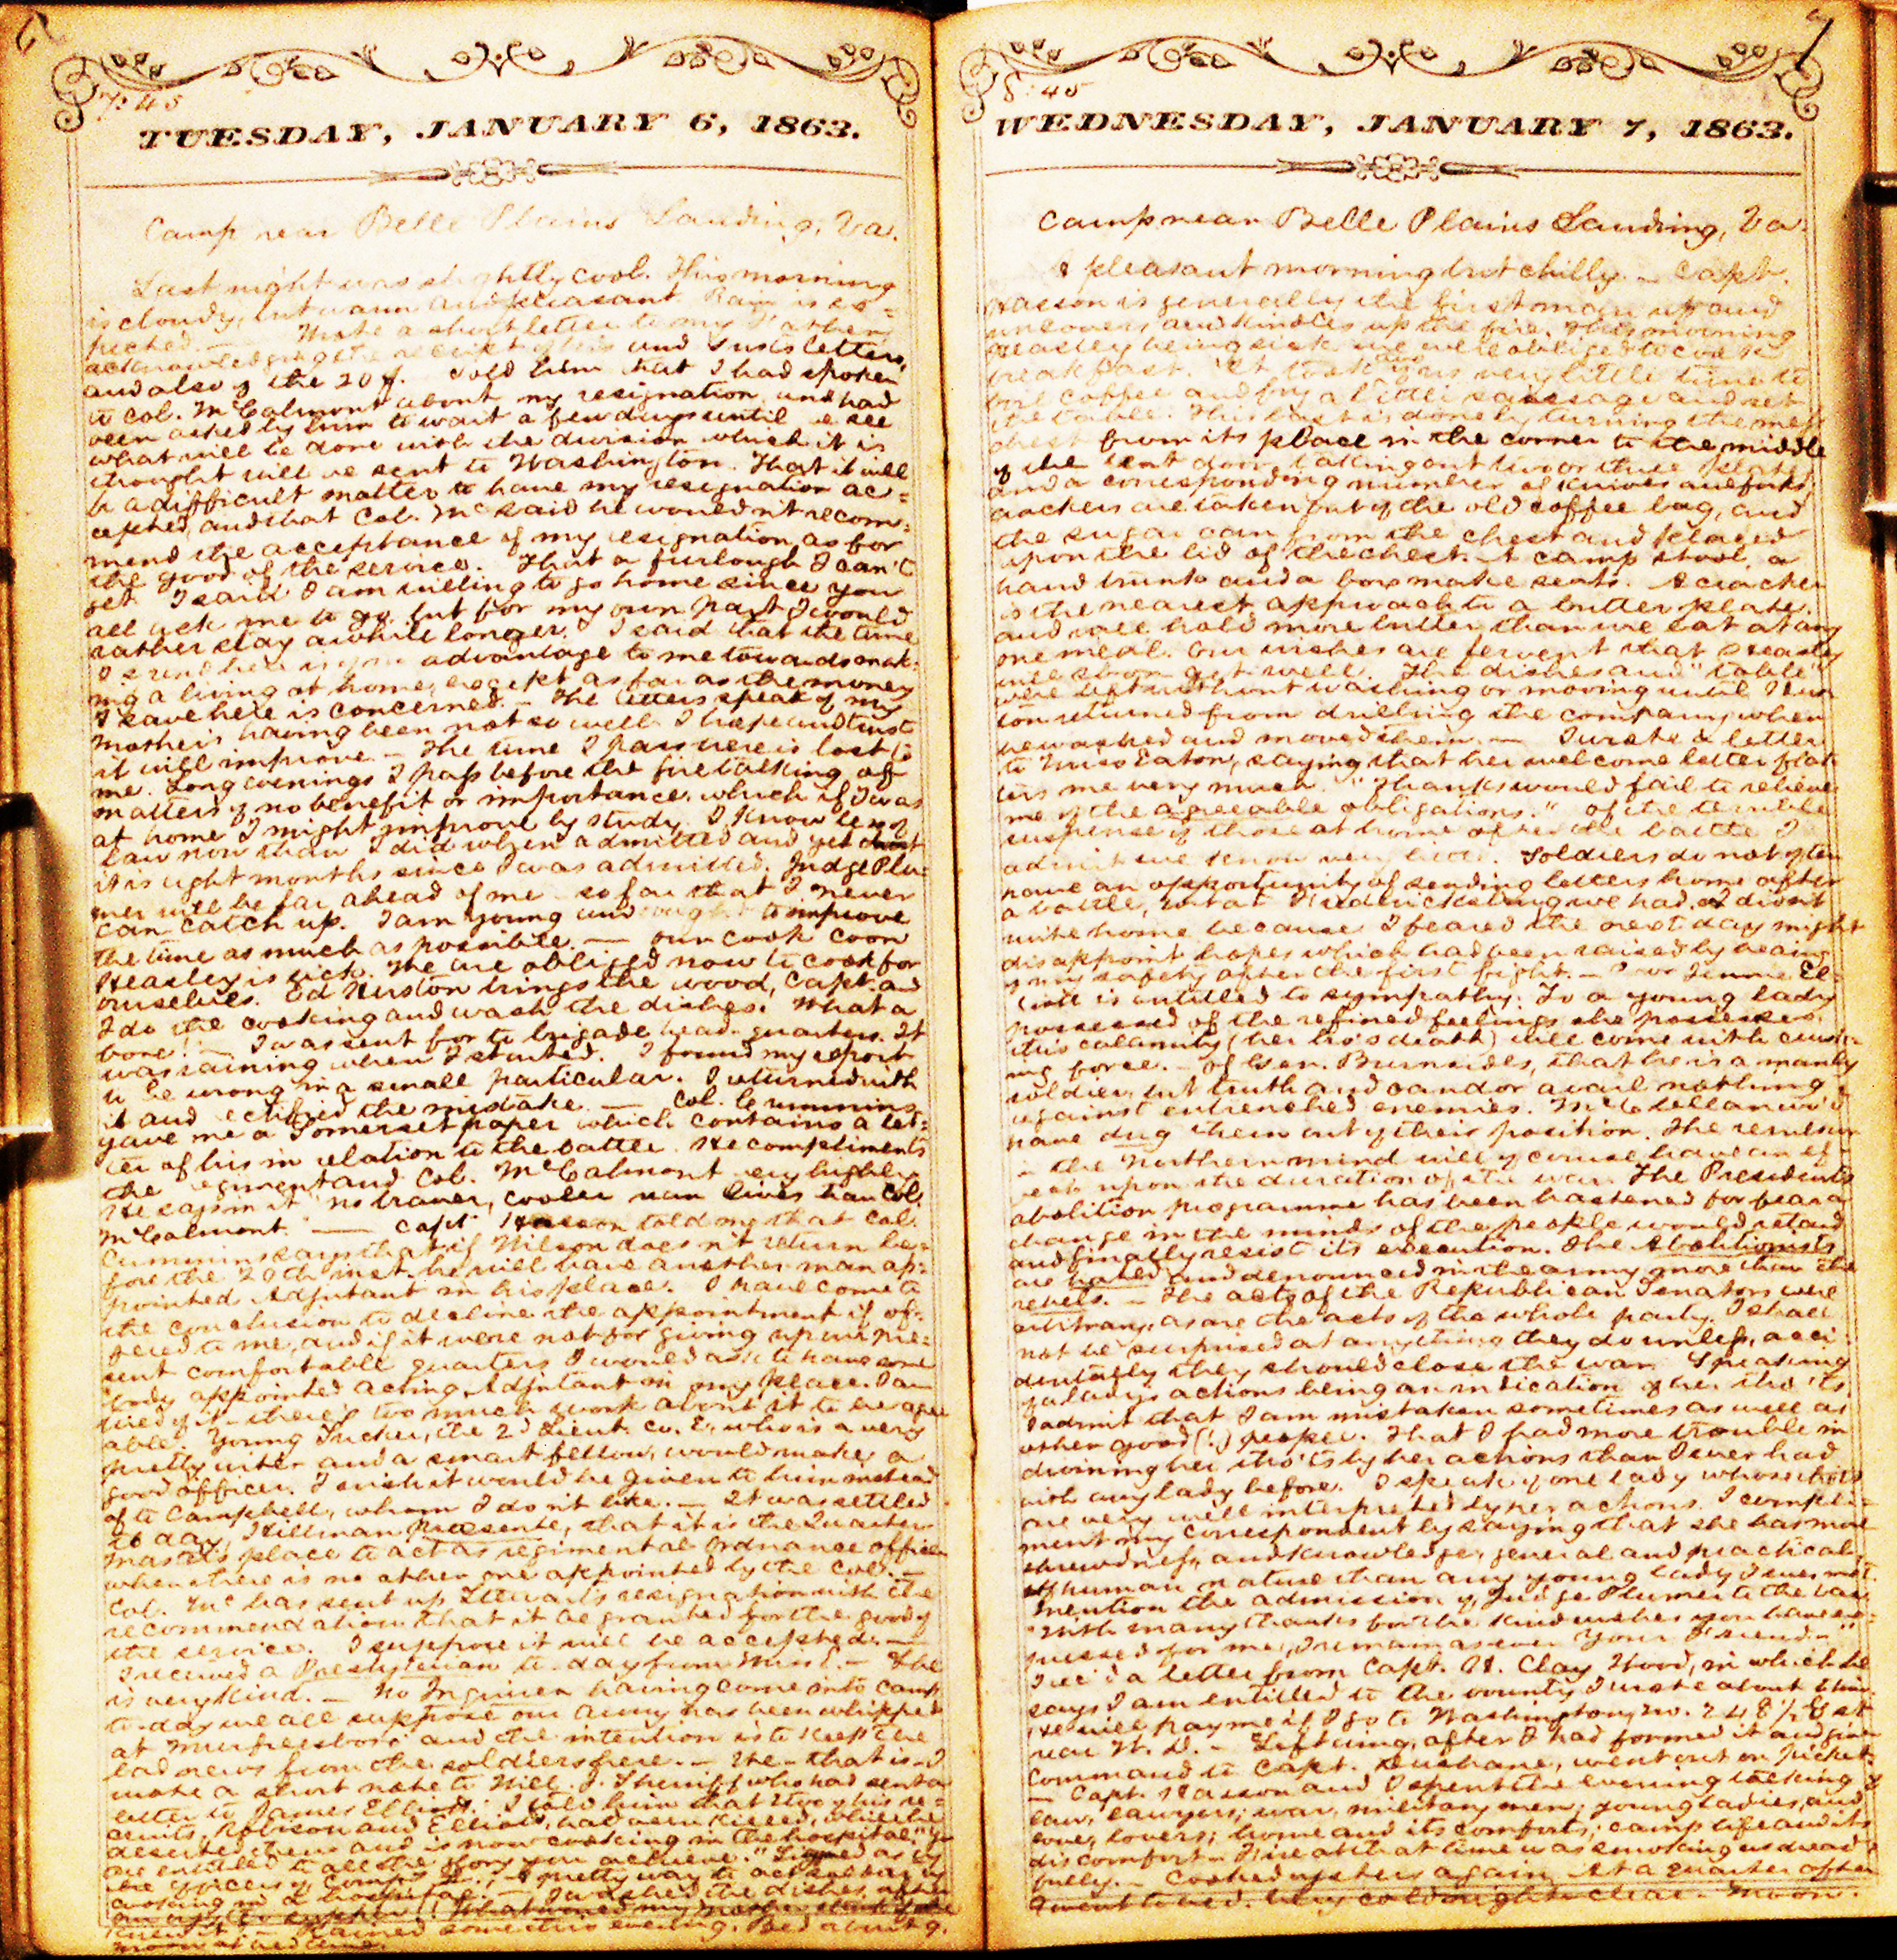 7:45
TUESDAY, JANUARY 6, 1863.
Camp near Belle Plains Landing, Va.
Last night was slightly cool. This morning
is cloudy, but warm and pleasant. Rain is ex=
pected. — Wrote a short letter to my Father,
acknowledging the receipt of his and Sus's letters,
and also of the 20$. Told him that I had spoken
to Col. McCalmont about my resignation, and had
been asked by him to wait a few days until we see
what will be done with the division which it is
thought will be sent to Washington. That it will
be a difficult matter to have my resignation ac=
cepted, and that Col. Mc said he wouldn't recom=
mend the acceptance of my resignation, as for
the good of the service. That a furlough I can't
get. I said I am willing to go home since you
all ask me to go, but for my own part I would
rather stay awhile longer. I said that the time
I spend here is of no advantage to me towards mak=
ing a living at home, except as far as the money
I save here is concerned. — The letters speak of my
Mother's having been not so well. I hope and trust
it will improve. — The time I pass here is lost to
me. Long evenings I pass before the fire talking of
matters of no benefit or importance, which if I was
at home I might improve by study. I know less of
law now than I did when admitted and yet
it is eight months since I was admitted. Judge Plu=
mer will be far ahead of me so far that I never
can catch up. I am young and ought to improve
the time as much as possible. — Our cook Coon
Heasley is sick. We are obliged now to cook for
ourselves. Ed Huston brings the wood, Capt. and
I do the cooking and wash the dishes. What a
bore! — I was sent for to brigade head-quarters. It
was raining when I started. I found my report
to be wrong in a small particular. I returned with
it and rectified the mistake. — Col. Cummins
gave me a Somerset paper which contains a let=
ter of his in relation to the battle. He compliments
the regiment and Col. McCalmont very highly.
He says in it "no braver, cooler man lives than Col.
McCalmont." — Capt. Hasson told me that Col.
Cummins says that if Wilson doesn't return be=
fore the 20th inst. he will have another man ap=
pointed Adjutant in his place. I have come to
the conclusion to decline the appointment if of=
fered to me, and if it were not for giving up our pre=
sent comfortable quarters I would ask to have some
body appointed acting Adjutant in my place. I am
tired of it — there's too much work about it to be agree
able. Young Tucker, the 2d Lieut. Co. E, who is a very
pretty writer and a smart fellow, would make a
good officer. I wish it would be given to him instead
of to Campbell, whom I don't like. — It was settled
to day, Hillman presente, that it is the Quarter=
master's place to act as regimental Ordnance officer
when there is no other one appointed by the Col. —
Col. Mc has sent up Stewart's resignation with the
recommendation that it be granted for the good of
the service. I suppose it will be accepted. —
I received a Presbyterian to-day from Miss L. — She
is very kind. — No Inquirer having come into camp
to-day we all suppose our army has been whipped
at Murfreesboro' and the intention is to keep the
bad news from the soldiers here. — We — that is — I
wrote a short note to Will. J. Sheriff who had sent a
letter to James Elliott. I told him that two of his re=
cruits, Robison and Elliott, had been killed, while he
deserted them and is now cooking in the hospital. "You
are entitled to all the glory you achieve." Signed as by
the officers of Comp. A pretty way to act soldier by
cooking in a hospital. — I washed the dishes after
supper. (What would my mother think if she
knew it.) — Rained some this evening. Bed at 9.
Moon at bed time.
7
8:45
WEDNESDAY, JANUARY 7, 1863.
Camp near Belle Plains Landing, Va.
A pleasant morning but chilly. — Capt.
Hasson is generally the first man up and
uncovers and kindles up the fire. This morning
Heasley being sick we were obliged to cook
breakfast. It took us very little time to
boil coffee and fry a little sausage and set
the table. This last is done by turning the mess
chest from its place in the corner to the middle
of the tent door, taking out two or three plates
and a corresponding number of knives and forks
crackers are taken out of the old coffee bag, and
the sugar can from the chest and placed
upon the lid of the chest. A camp stool, a
hand trunk and a box make seats. A cracker
is the nearest approach to a butter plate,
and will hold more butter than we eat at any
one meal. Our wishes are fervent that Heasley
will soon get well. The dishes and "table"
were left without washing or moving until
returned from drilling the company, when
he washed and moved them. — I wrote a letter
to Miss Eaton, saying that her welcome letter flat=
ters me very much. "Thanks would fail to relieve
me of the agreeable obligations." Of the terrible
suspense of those at home after the battle I
admit we know very little. Soldiers do not often
have an opportunity of sending letters home after
a battle, but at Fredericksburg we had. I didn't
write home because I feared the next day might
disappoint hopes which had been raised by hearing
of my safety after the first fight. — Poor Jennie El=
liott is entitled to sympathy. To a young lady
possessed of the refined feelings she possesses,
this calamity (her bro's death) will come with crush=
ing force. — Of Gen. Burnsides, that he is a manly
soldier, but truth and candor avail nothing
against entrenched enemies. McClellan wo'd
have dug them out of their position. The
in the Northern mind will of course have an ef=
fect upon the duration of the war. The President's
abolition programme has been hastened for fear a
change in the minds of the people would retard
and finally resist its execution. The Abolitionists
are hated and denounced in the army more than the
rebels. — The acts of the Republican Senators were
arbitrary, as are the acts of the whole party. I shall
not be surprised at anything they do unless, acci=
dentally they should close the war. Speaking
of a lady's actions being an indication of her tho'ts
I admit that I am mistaken sometimes as well as
other good (!) people. That I had more trouble in
divining her tho'ts by her actions than I ever had
with any lady before. I speak of one lady whose tho'ts
are very well interpreted by her actions. I compli=
ment my correspondent by saying that she has more
shrewdness, and knowledge, general and practical,
of human nature than any young lady I ever met.
Mention the admission of Judge Plumer to the bar.
"With many thanks for the kind wishes you have ex=
pressed for me, I remain as ever Your Friend. — "
I rec'd a letter from Capt. H. Clay Wood, in which he
says I am entitled to the bounty I wrote about &
He will pay me if I go to Washington, No. 248 ½ G st
near W. D. — Left wing, after I had formed it and given
command to Capt. Dushane, went out on picket.
— Capt. Hasson and I spent the evening talking of
law, lawyers; war, military men; young ladies, and
love, lovers; home and its comforts; camp life and its
discomforts. Fire at that time was smoking us dread=
fully. — Cooked oysters again. At a quarter after
I went to bed. Very cold night. Clear. — Moon.